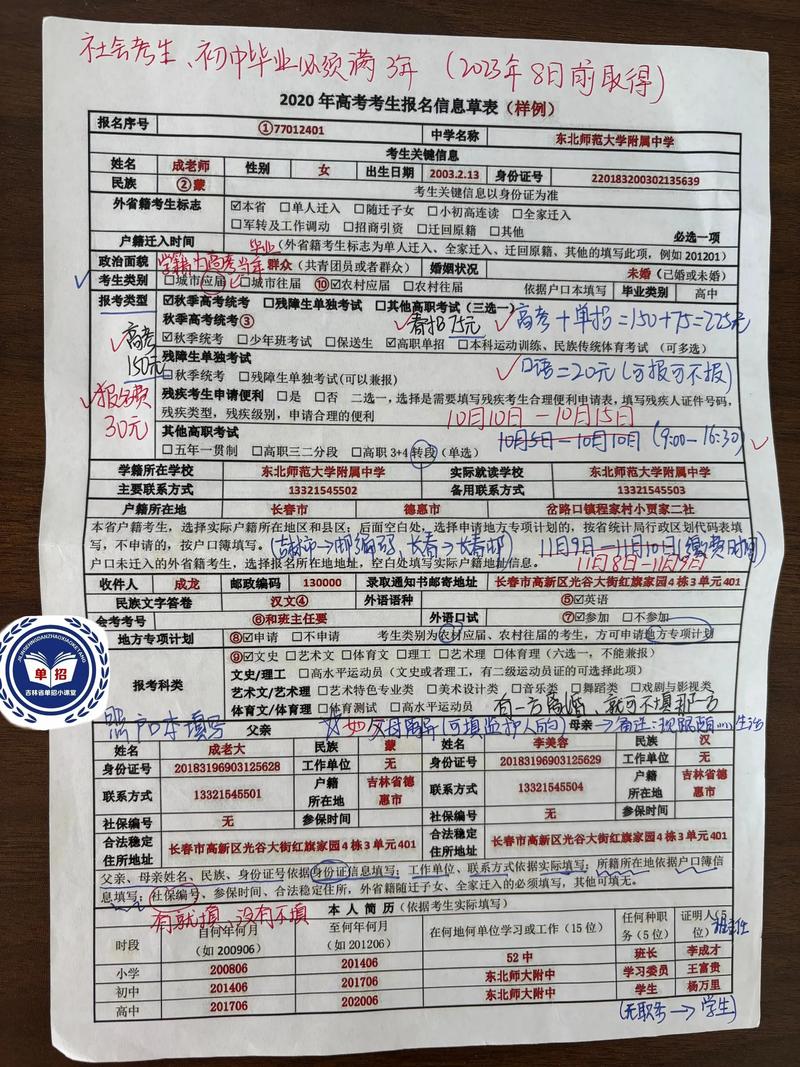 社会考生、初中毕业必须满3年（2023年8月前取得）
2020年高考考生报名信息草表（样例）
报名序号 ①77012401 中学名称 东北师范大学附属中学
考生关键信息
姓名 成老师 性别 女 出生日期 2003.2.13 身份证号 220183200302135639
民族 ②蒙 考生关键信息以身份证为准
外省籍考生标志 ☑本省 □单人迁入 □随迁子女 □小初高连读 □全家迁入
□军转及工作调动 □招商引资 □迁回原籍 □其他
必选一项
户籍迁入时间 （外省籍考生标志为单人迁入、全家迁入、迁回原籍、其他的填写此项，例如 201201）
毕业
学籍为高考当年
政治面貌 群众（共青团员或者群众） 婚姻状况 未婚（已婚或未婚）
考生类别 □城市应届 □城市往届 ⑩☑农村应届 □农村往届 依据户口本填写 毕业类别 高中
报考类型 ☑秋季高考统考 □残障生单独考试 □其他高职考试（三选一）
秋季高考统考③
春招75元 高考+单招=150+75=225元
☑秋季统考 □少年班考试 □保送生 ☑高职单招 □本科运动训练、民族传统体育考试（可多选）
高考150元
残障生单独考试
□秋季统考 □残障生单独考试(可以兼报)
口语=20元（可报可不报）
残疾考生申请便利 □是 □否 二选一，选择是需要填写残疾考生合理便利申请表，填写残疾人证件号码，
残疾类型，残疾级别，申请合理的便利
报名费30元
10月10日—10月15日
其他高职考试
10月5日—10月10日（9:00-16:30）
□五年一贯制 □高职三二分段 □高职3+4转段（单选）
学籍所在学校 东北师范大学附属中学 实际就读学校 东北师范大学附属中学
主要联系方式 13321545502 备用联系方式 13321545503
户籍所在地 长春市 德惠市 岔路口镇程家村小贾家二社
本省户籍考生，选择实际户籍所在地区和县区；后面空白处，选择申请地方专项计划的，按省统计局行政区划代码表填
写，不申请的，按户口簿填写。
11月9日—11月10日（缴费时间）
户口未迁入的外省籍考生，选择报名所在地地址，空白处填写实际户籍地址信息。
11月8日—11月9日
收件人 成龙 邮政编码 130000 录取通知书邮寄地址 长春市高新区光谷大街红旗家园4栋3单元401
民族文字答卷 汉文④ 外语语种 ⑤☑英语
会考考号 ⑥和班主任要 外语口试 ⑦☑参加 □不参加
地方专项计划 ⑧☑申请 □不申请 考生类别为农村应届、农村往届的考生，方可申请地方专项计划
报考科类 ⑨☑文史 □艺术文 □体育文 □理工 □艺术理 □体育理（六选一，不能兼报）
文史/理工 □高水平运动员（文史或者理工，有二级运动员证的可选择此项）
艺术文/艺术理 □艺术特色专业类 □美术设计类 □音乐类 □舞蹈类 □戏剧与影视类
体育文/体育理 □体育测试 □高水平运动员
照户口本填写
父亲 母亲
姓名 成老大 民族 蒙 姓名 李美容 民族 汉
身份证号 220183196903125628 工作单位 无 身份证号 220183196903125629 工作单位 无
联系方式 13321545501 户籍所在地 吉林省德惠市 联系方式 13321545504 户籍所在地 吉林省德惠市
社保编号 无 参保时间 社保编号 无 参保时间
合法稳定住所地址 长春市高新区光谷大街红旗家园4栋3单元401 合法稳定住所地址 长春市高新区光谷大街红旗家园4栋3单元401
父亲、母亲姓名、民族、身份证号依据身份证信息填写；工作单位、联系方式依据实际填写；所籍所在地依据户口簿信
息填写；社保编号、参保时间、合法稳定住所，外省籍随迁子女、全家迁入的必须填写，其他可填无。
有就填、没有不填
本人简历（依据考生实际填写）
时段 自何年何月（如 200906） 至何年何月（如 201206） 在何地何单位学习或工作（15位） 任何种职务（5位） 证明人（5位）
班主任
小学 200806 201406 52中 班长 李成才
初中 201406 201706 东北师大附中 学习委员 王富贵
高中 201706 202006 东北师大附中 学生 杨万里
（无职务→学生）
JILINSHENGDANZHAOXIAOKETANG
单招
吉林省单招小课堂